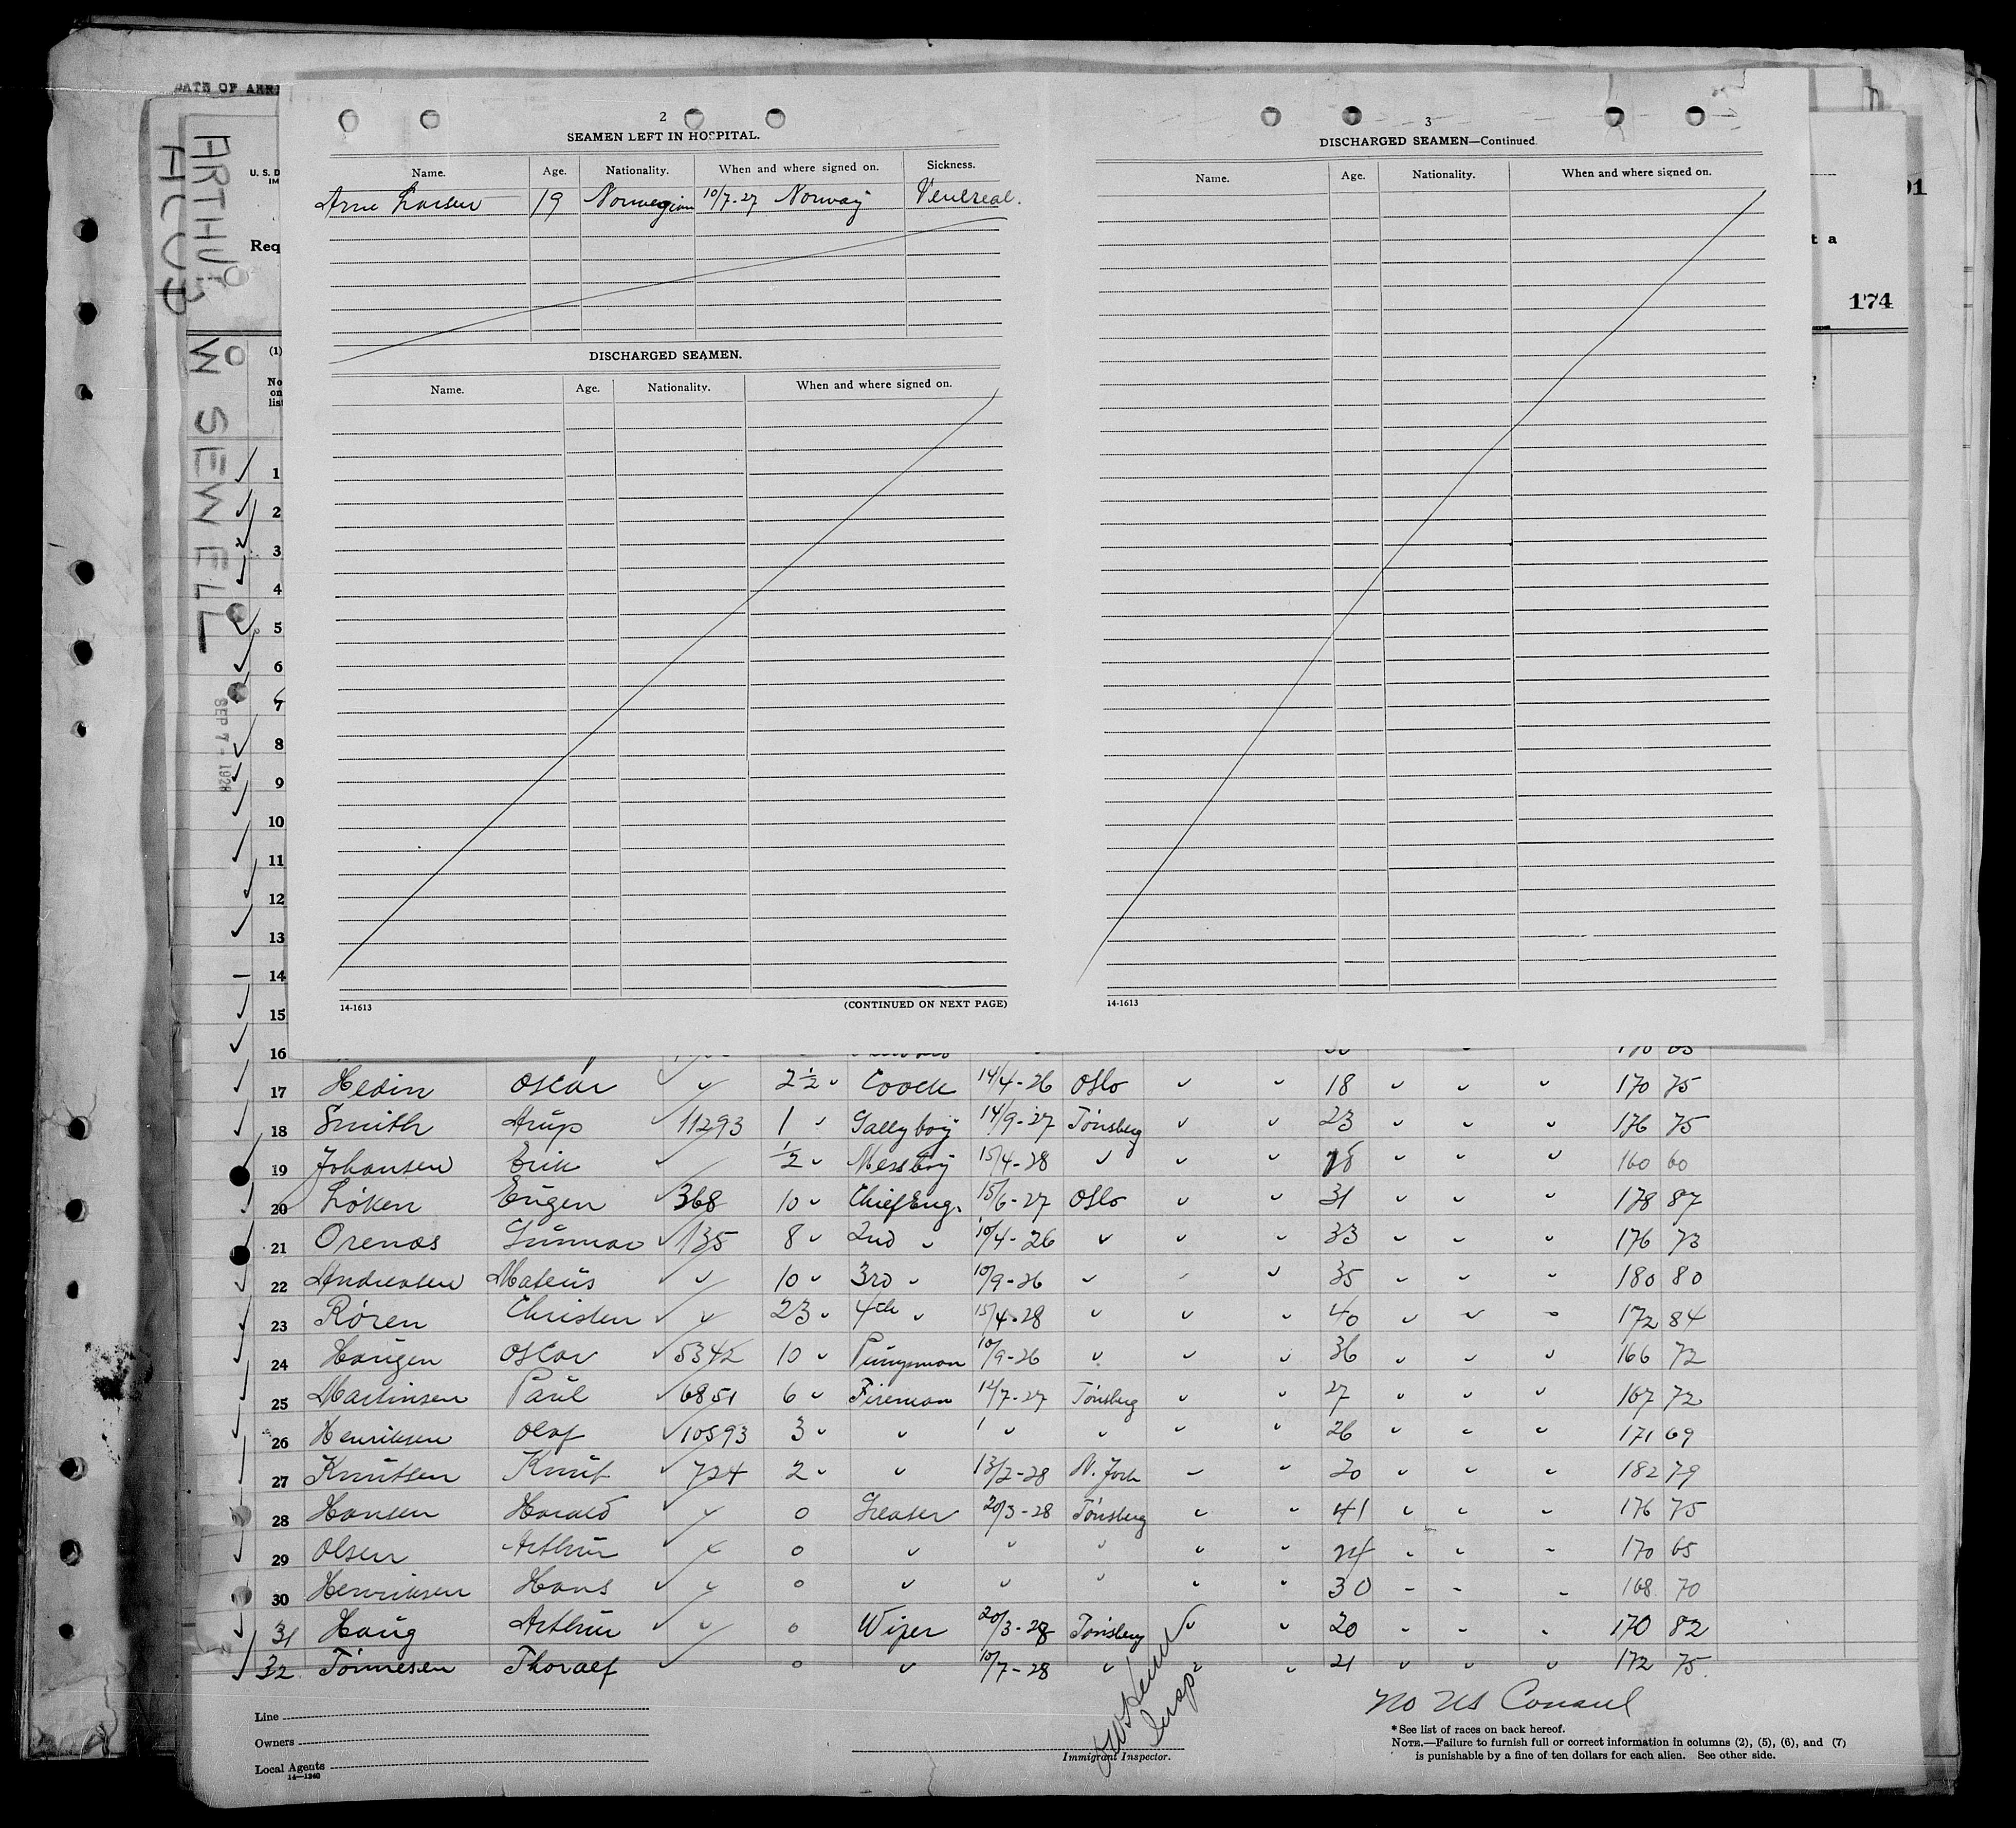 DATE OF ARRI
ARTHUR W SEWELL
SEP 7 - 1928
U. S. D
IM
Req
(1)
No
on
list
91
t a
174
2
SEAMEN LEFT IN HOSPITAL.
Name. Age. Nationality. When and where signed on. Sickness.
Arne Larsen 19 Norwegian 10/7-27 Norway Venereal.
DISCHARGED SEAMEN.
Name. Age. Nationality. When and where signed on.
14-1613 (CONTINUED ON NEXT PAGE)
3
DISCHARGED SEAMEN—Continued.
Name. Age. Nationality. When and where signed on.
14-1613
1
2
3
4
5
6
7
8
9
10
11
12
13
14
15
16
17 Hedin Oscar " 2 1/2 " Coock 14/4-26 Oslo " " 18 " " " 170 75
18 Smith Arup 11293 1 " Gallyboy 14/9-27 Tönsberg " " 23 " " " 176 75
19 Johansen Erik 1/2 " Messboy 15/4-28 " " " 18 " " " 160 60
20 Löken Eugen 368 10 " Chief Eng. 15/6-27 Oslo " " 31 " " " 178 87
21 Orenas Gunnar 135 8 " 2nd " 10/4-26 " " " 33 " " " 176 73
22 Andreasen Mateus " 10 " 3rd " 10/9-26 " " " 35 " " " 180 80
23 Rören Christen " 23 " 4th " 15/4-28 " " " 40 " " " 172 84
24 Haugen Oscar 5342 10 " Pumpman 10/9-26 " " " 36 " " " 166 72
25 Martinsen Paul 6851 6 " Fireman 12/7-27 Tönsberg " " 27 " " " 167 72
26 Henriksen Olaf 10593 3 " " " " " " 26 " " " 171 69
27 Knutsen Knut 724 2 " " 13/2-28 N. York " " 20 " " " 182 79
28 Hansen Harald " 0 Greaser 20/3-28 Tönsberg " " 41 " " " 176 75
29 Olsen Arthur " 0 " " " " " 24 " " " 170 65
30 Henriksen Hans " 0 " " " " " 30 " " " 168 70
31 Haug Arthur " 0 Wiper 20/3-28 Tönsberg " " 20 " " " 170 82
32 Tönnesen Thoralf 0 " 10/7-28 " " " 21 " " " 172 75.
Line
Owners
Local Agents
14—1240
Insp
Immigrant Inspector.
No US Consul
* See list of races on back hereof.
NOTE.—Failure to furnish full or correct information in columns (2), (5), (6), and (7)
is punishable by a fine of ten dollars for each alien. See other side.